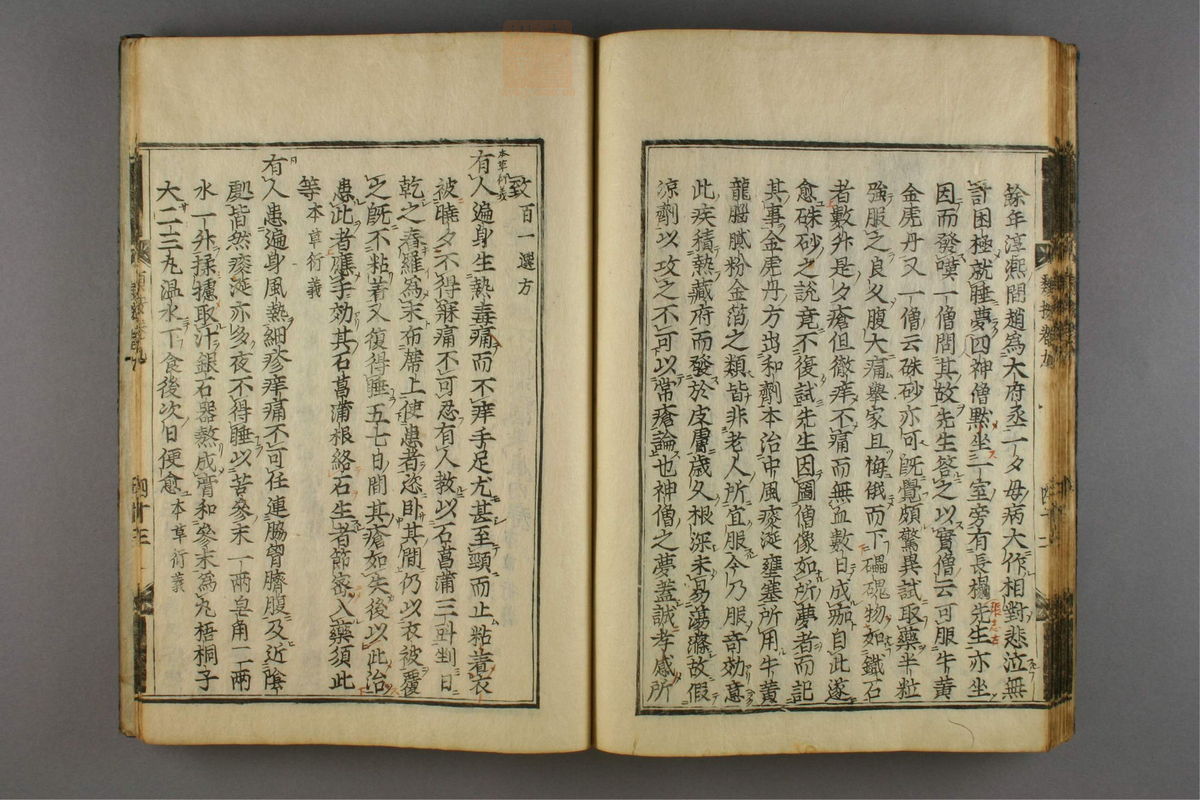 餘年淳熈間趙為大府丞一夕母病大作相對悲泣無
計因極就睡夢四神僧黙坐一室旁有長榻先生亦坐
因而發嘆一僧問其故先生答之以實僧云可服牛黄
金虎丹又一僧云硃砂亦可既覺頗驚異試取藥半粒
強服之良久腹大痛舉家且悔俄而下礧磈物如鐵石
者數升是夕瘡但微痒不痛而無血數日成痂自此遂
愈硃砂之説竟不復試先生因圖僧像如所夢者而記
其事金虎丹方出和劑本治中風痰涎壅塞所用牛黄
龍腦膩粉金箔之類皆非老人所宜服今乃服竒効意
此疾積熱藏府而發於皮膚歲久根深未易蕩滌故假
涼劑以攻之不可以常瘡論也神僧之夢蓋誠孝感所
致百一選方
本草衍義
有人遍身生熱毒痛而不痒手足尤甚至頸而止粘着衣
被曉夕不得寐痛不可忍有人教以石菖蒲三斗剉日
乾之舂羅為末布席上使患者恣卧其間仍以衣被覆
之既不粘着又復得睡五七日間其瘡如失後以此治
患此者應手効其石菖蒲根絡石生者節密入藥須此
等本草衍義
有人患遍身風熱細疹痒痛不可任連脇胷臍腹及近陰
處皆然痰涎亦多夜不得睡以苦參末一兩皂角二兩
水一升揉攄取汁銀石器熬成膏和參末為丸梧桐子
大二三十丸温水下食後次日便愈本草衍義